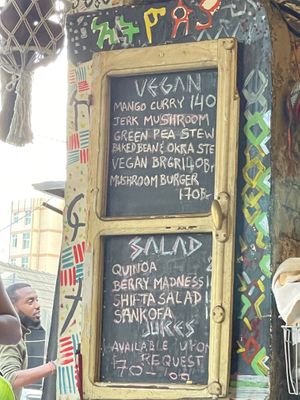 VEGAN
MANGO CURRY 140
JERK MUSHROOM
GREEN PEA STEW
BAKED BEAN & OKRA STEW
VEGAN BRGR 140Br
MUSHROOM BURGER
170Br
SALAD
QUINOA
BERRY MADNESS
SHIFTA SALAD
SANKOFA
JUKES
AVAILABLE UPON
REQUEST